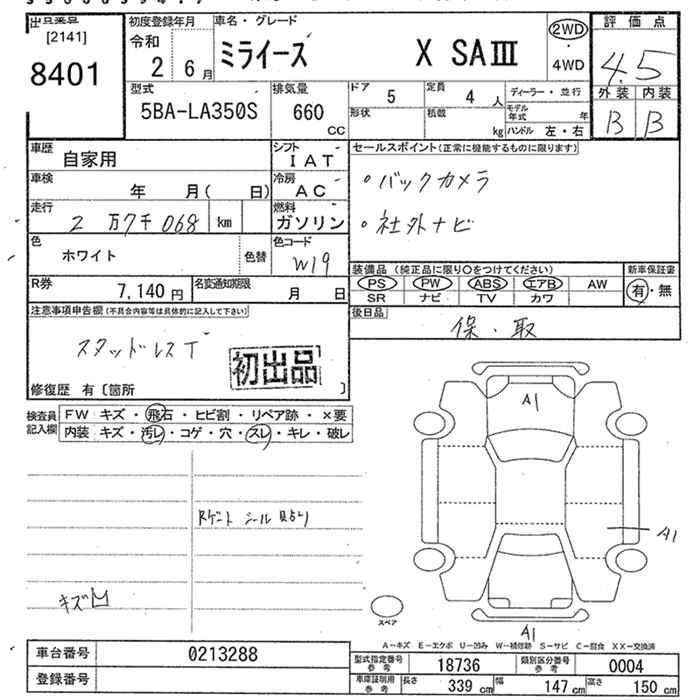 [2141]
8401
初度登録年月
令和
2 6月
車名・グレード
ミライース X SAⅢ
2WD
・
4WD
評価点
4.5
外装 内装
B B
型式
5BA-LA350S
排気量
660
CC
ドア 5
定員 4人
形状
積載 kg
ディーラー・並行
モデル年式 年
ハンドル 左・右
車歴 自家用
シフト IAT
車検 年 月( 日)
冷房 AC
走行 2万7千068 km
燃料 ガソリン
色 ホワイト 色替
色コード W19
R券 7,140円
名変通知期限 月 日
セールスポイント(正常に機能するものに限ります)
・バックカメラ
・社外ナビ
装備品 (純正品に限り〇をつけてください)
新車保証書
PS PW ABS エアB AW
SR ナビ TV カワ
有・無
後日品
保・取
注意事項申告欄(不具合内容等は具体的に記入して下さい)
スタッドレスT
初出品
修復歴 有〔箇所 〕
検査員記入欄
FW キズ・飛石・ヒビ割・リペア跡・×要
内装 キズ・汚レ・コゲ・穴・スレ・キレ・破レ
キズ凹
A1
A1
A1
スペア
A-キズ E-エクボ U-凹み W-補修跡 S-サビ C-腐食 XX-交換済
車台番号 0213288
登録番号
型式指定番号参考 18736
類別区分番号参考 0004
車庫証明用参考 長さ 339cm 幅 147cm 高さ 150cm